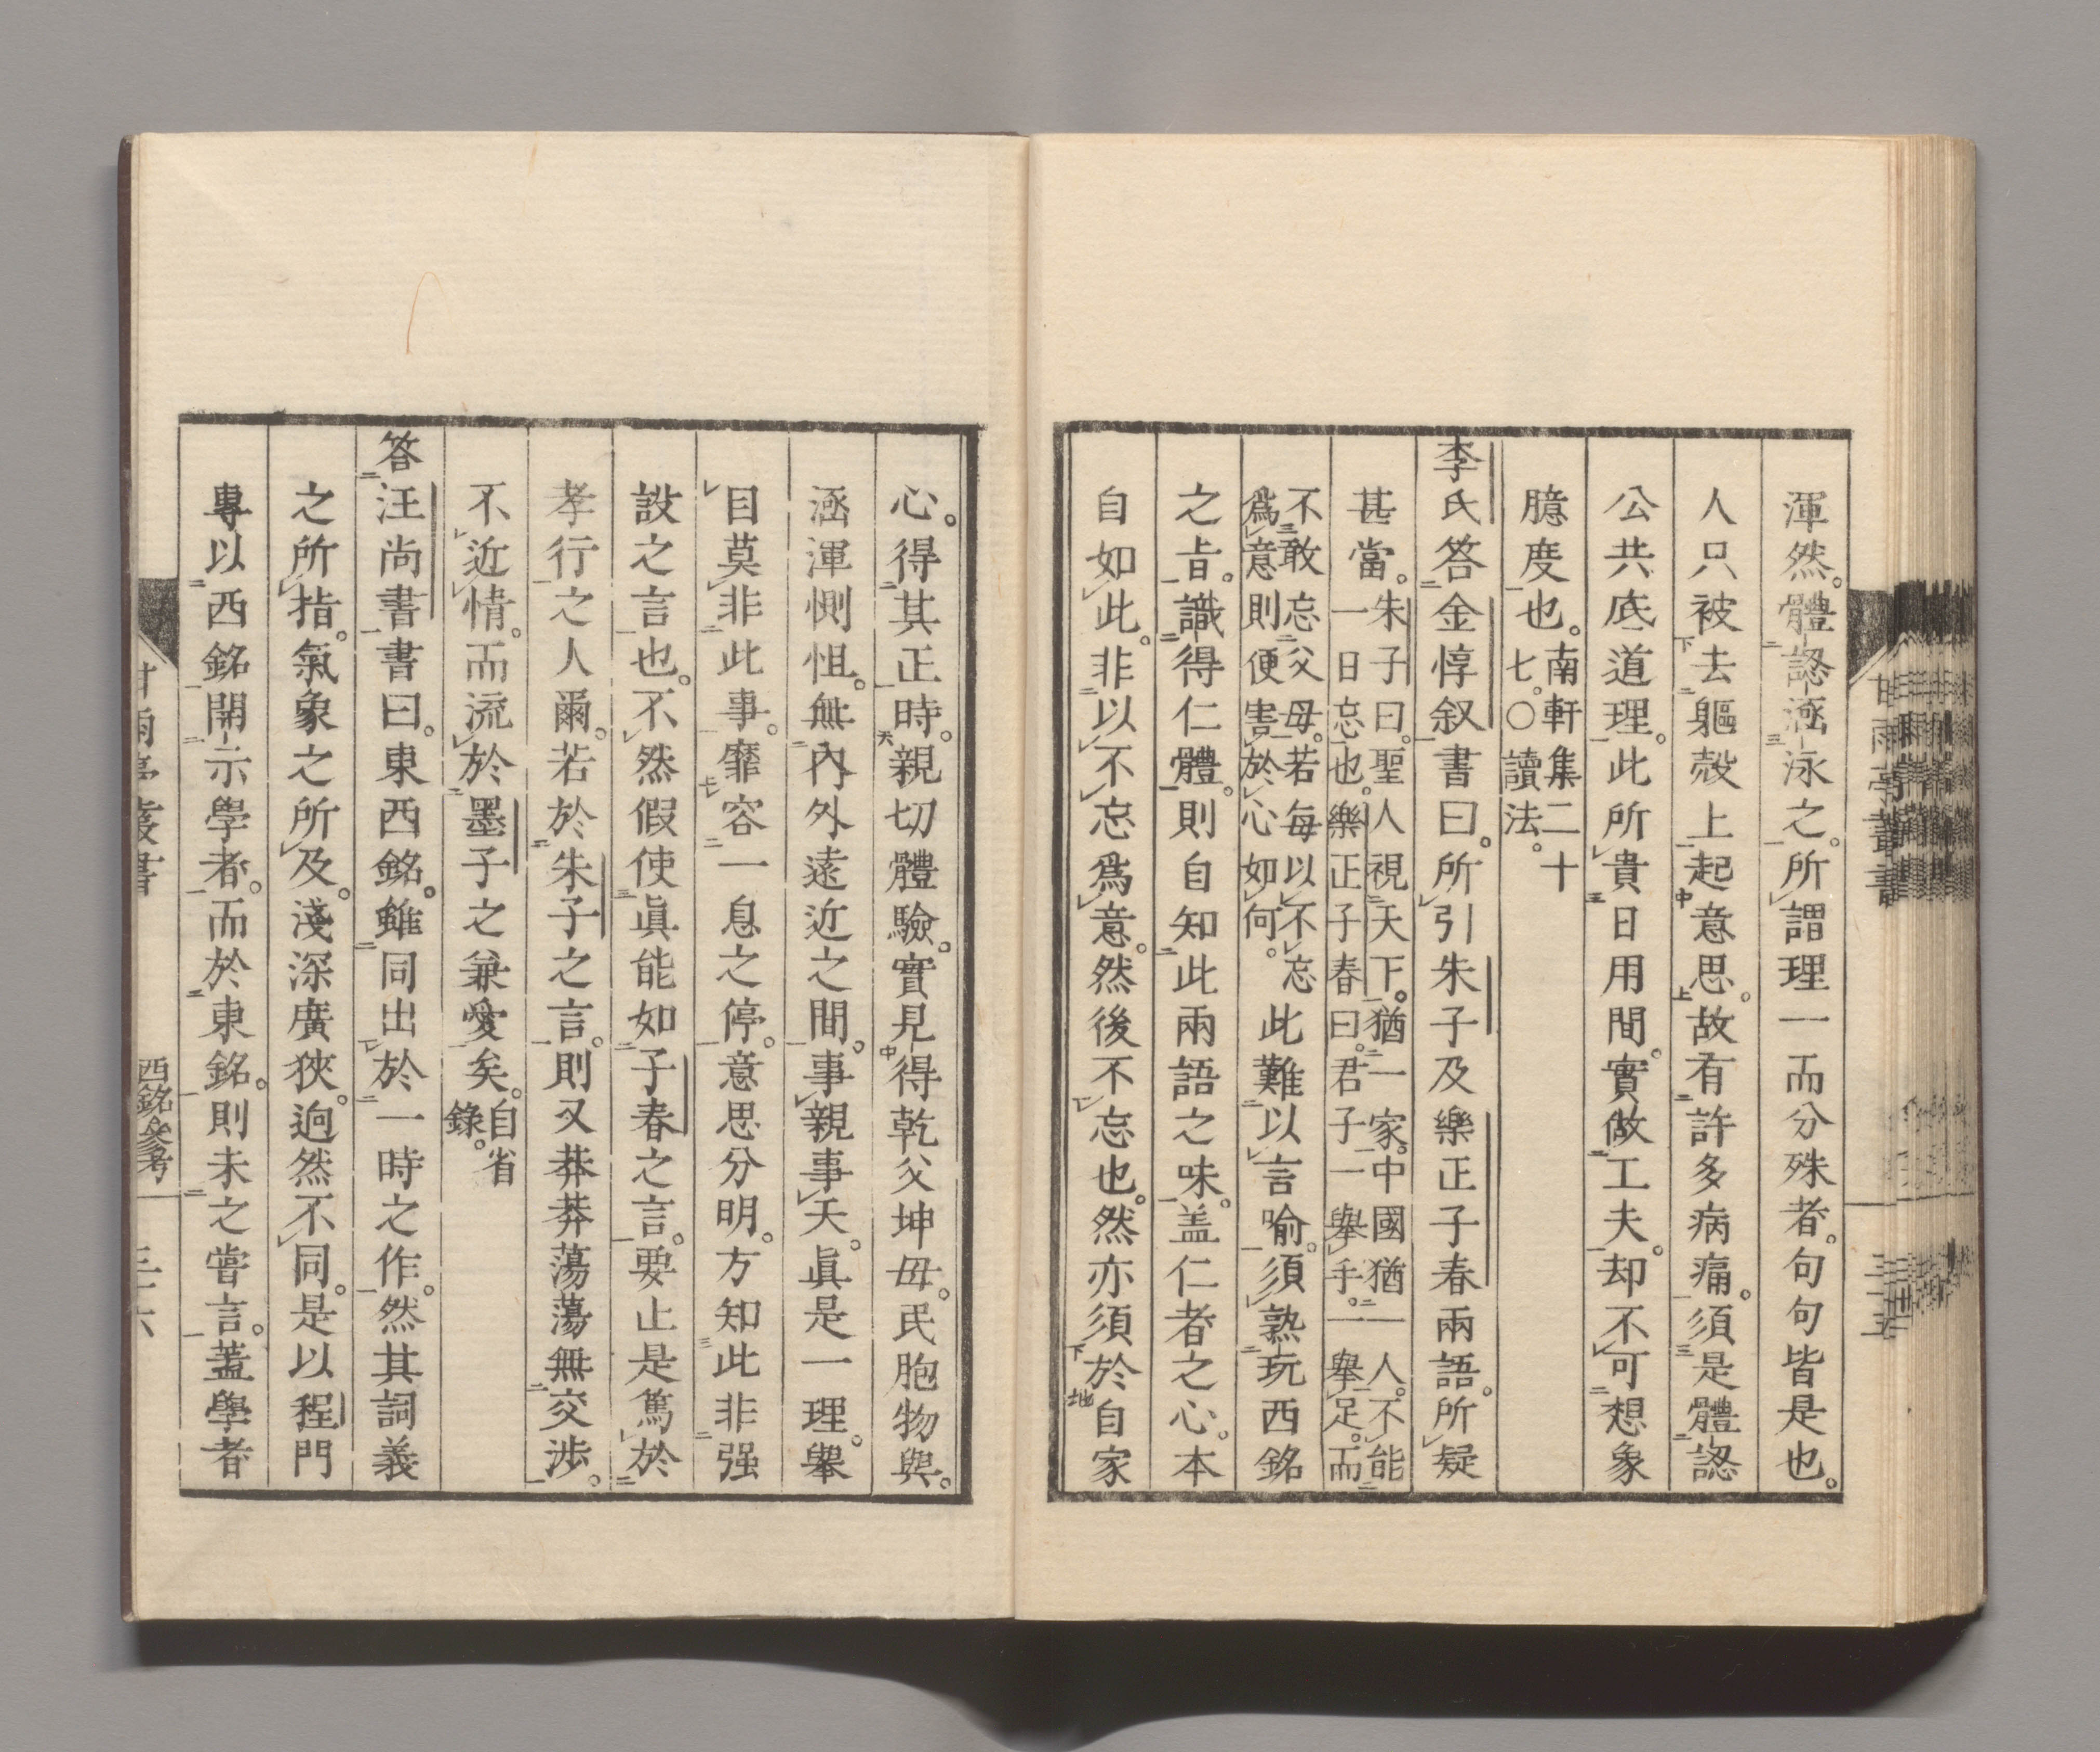 渾然。體認涵泳之。所謂理一而分殊者。句句皆是也。
人只被去軀殼上起意思。故有許多病痛。須是體認
公共底道理。此所貴日用間。實做工夫。却不可想象
臆度也。南軒集二十
七。○讀法。
李氏答金惇叙書曰。所引朱子及樂正子春兩語。所疑
甚當。朱子曰。聖人視天下。猶一家。中國猶一人。不能
一日忘也。樂正子春曰。君子一舉手。一舉足。而
不敢忘父母。若每以不忘
爲意則便害於心如何。此難以言喻。須熟玩西銘
之旨。識得仁體。則自知此兩語之味。盖仁者之心。本
自如此。非以不忘爲意。然後不忘也。然亦須於自家
甘雨亭叢書
心。得其正時。親切體驗。實見得乾父坤母。民胞物與。
涵渾惻怛。無內外遠近之間。事親事天。眞是一理。舉
目莫非此事。靡容一息之停。意思分明。方知此非强
設之言也。不然假使眞能如子春之言。要止是篤於
孝行之人爾。若於朱子之言。則又莽莽蕩蕩無交涉。
不近情。而流於墨子之兼愛矣。自省
錄。
答汪尚書書曰。東西銘。雖同出於一時之作。然其詞義
之所指。氣象之所及。淺深廣狹。迥然不同。是以程門
專以西銘開示學者。而於東銘。則未之嘗言。蓋學者
甘雨亭叢書 西銘參考 三十六